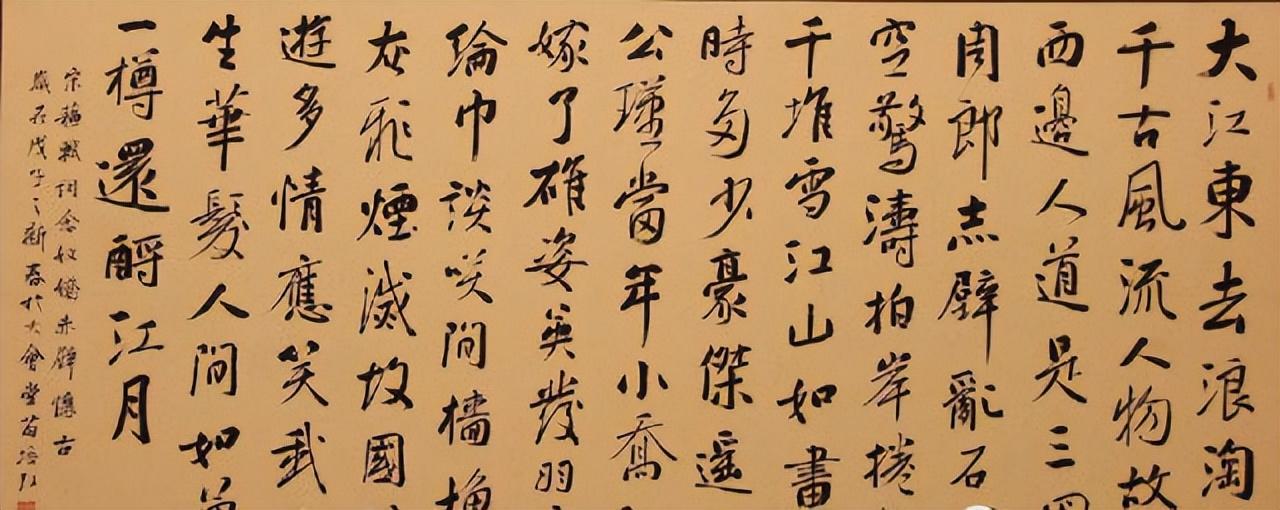 大江東去浪淘
千古風流人物故
西邊人道是三國
周郎赤壁亂石
空驚濤拍岸捲
千堆雪江山如畫
時多少豪傑遥
公瑾當年小喬
嫁了雄姿英發羽
綸巾談咲間檣櫓
灰飛煙滅故國
遊多情應笑我
生華髮人間如夢
一樽還酹江月
宋蘇軾詞念奴嬌赤壁懷古
歲在戊子之新春於大會堂苗培红